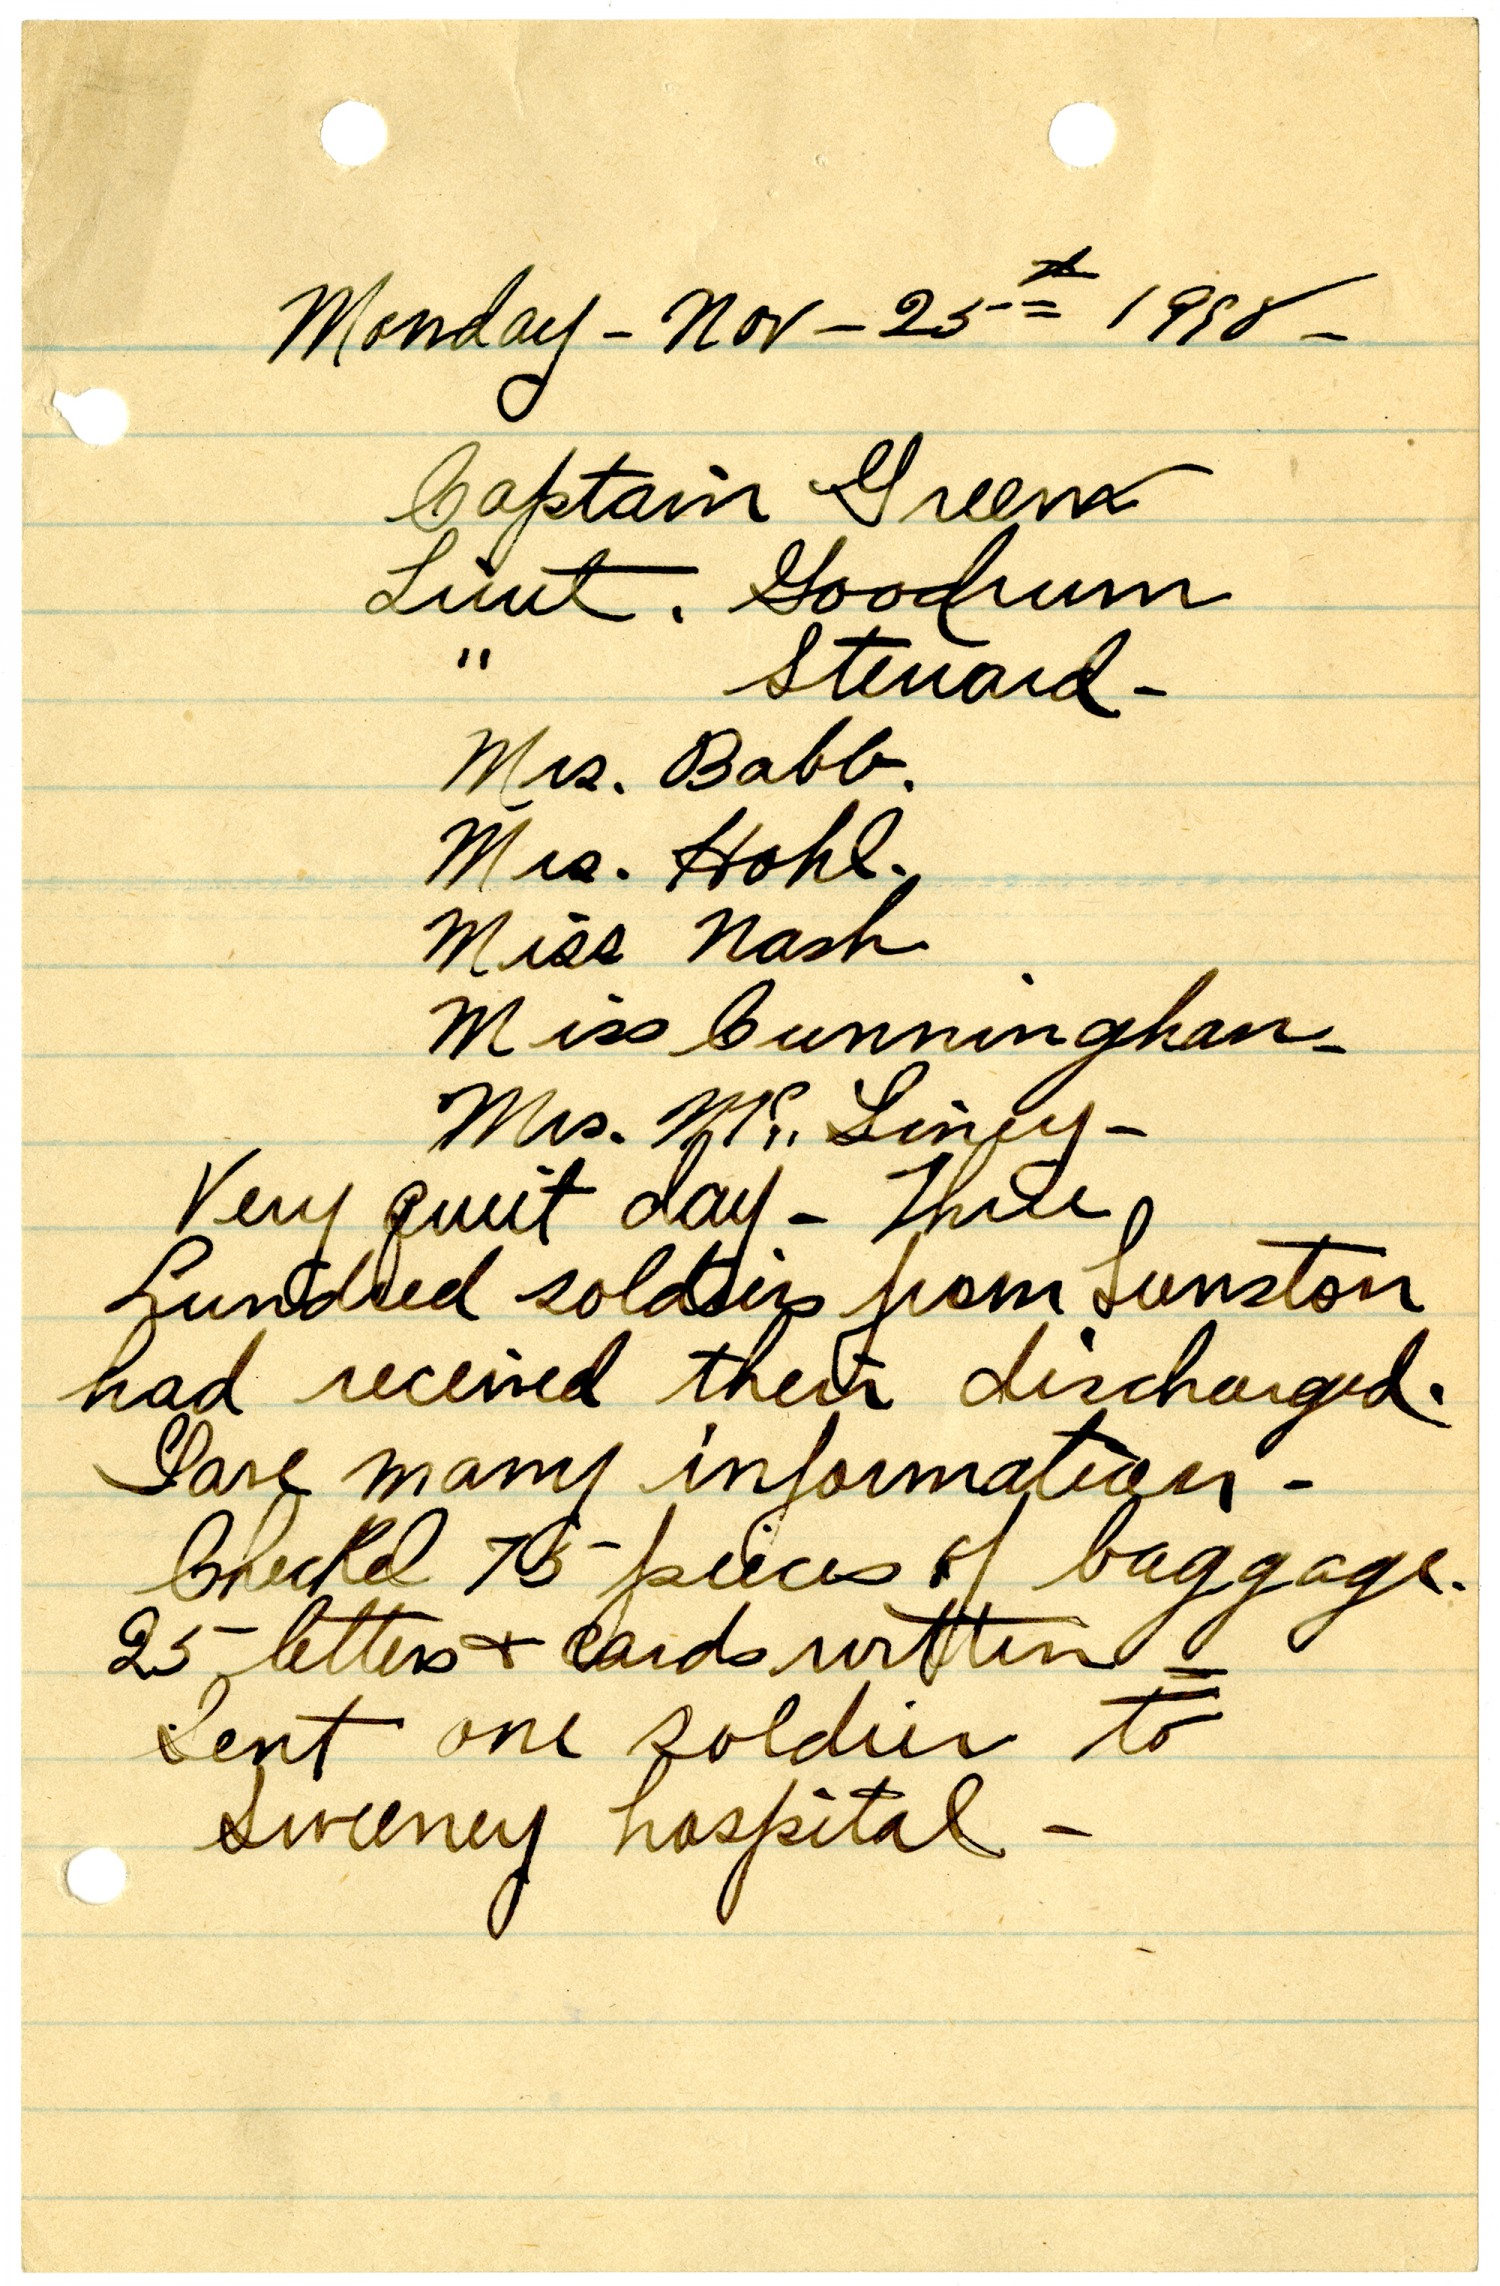 Monday - Nov - 25th 1918 -
Captain Greene
Lieut. Goodrum
" Steward -
Mrs. Babb.
Mrs. Hohl.
Miss Nash
Miss Cunninghan -
Mrs. Mc. Liney -
Very quiet day - Three
hundred soldiers from Funston
had received their discharged.
Gave many information -
Checked 75 pieces of baggage.
25 letters + cards written =
Sent one soldier to
Sweeney hospital -